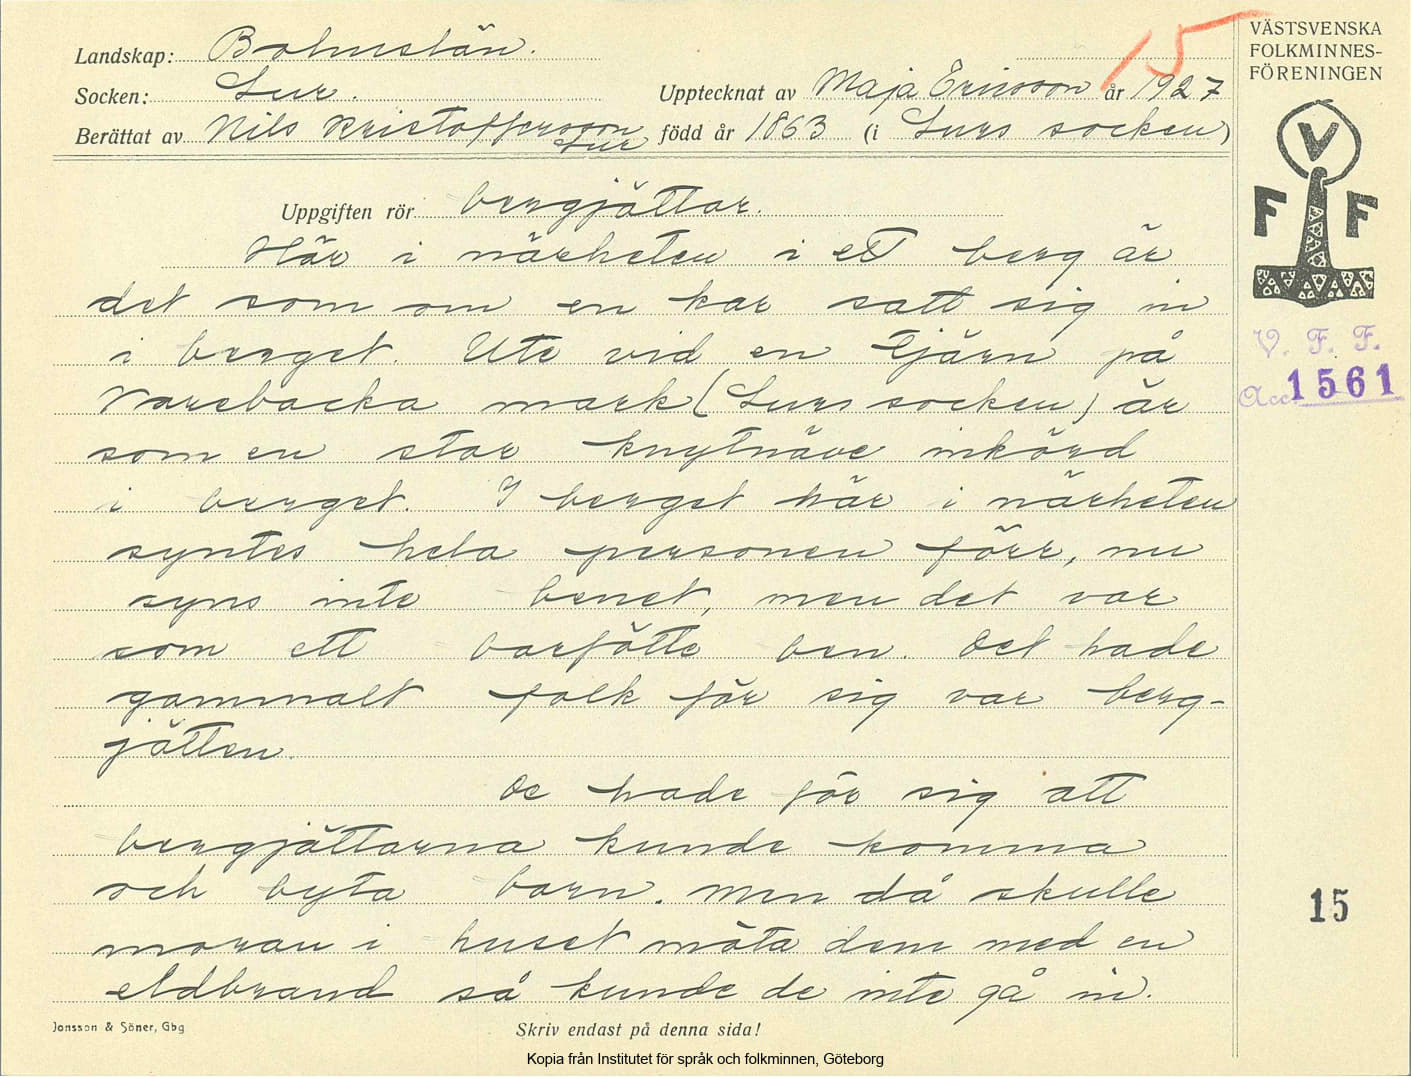 15
Landskap: Bohuslän.
Socken: Lur.
Upptecknat av Maja Ericsson år 1927
Berättat av Nils Kristoffersson Lur född år 1863 (i Lurs socken)
Uppgiften rör bergjättar.
Här i närheten i ett berg är
det som om en kar satt sig in
i berget. Ute vid en Tjärn på
Varebacka mark (Lurs socken) är
som en stor knytnäve inkörd
i berget. I berget här i närheten
syntes hela personen förr, nu
syns inte benet, men det var
som ett barfötte ben. Det hade
gammalt folk för sig var berg-
jätten.
De hade för sig att
bergjättarna kunde komma
och byta barn. Men då skulle
moran i huset möta dem med en
eldbrand så kunde de inte gå in.
Jonsson & Söner, Gbg
Skriv endast på denna sida!
VÄSTSVENSKA
FOLKMINNES-
FÖRENINGEN
V
F F
V. F. F.
Acc. 1561
15
Kopia från Institutet för språk och folkminnen, Göteborg